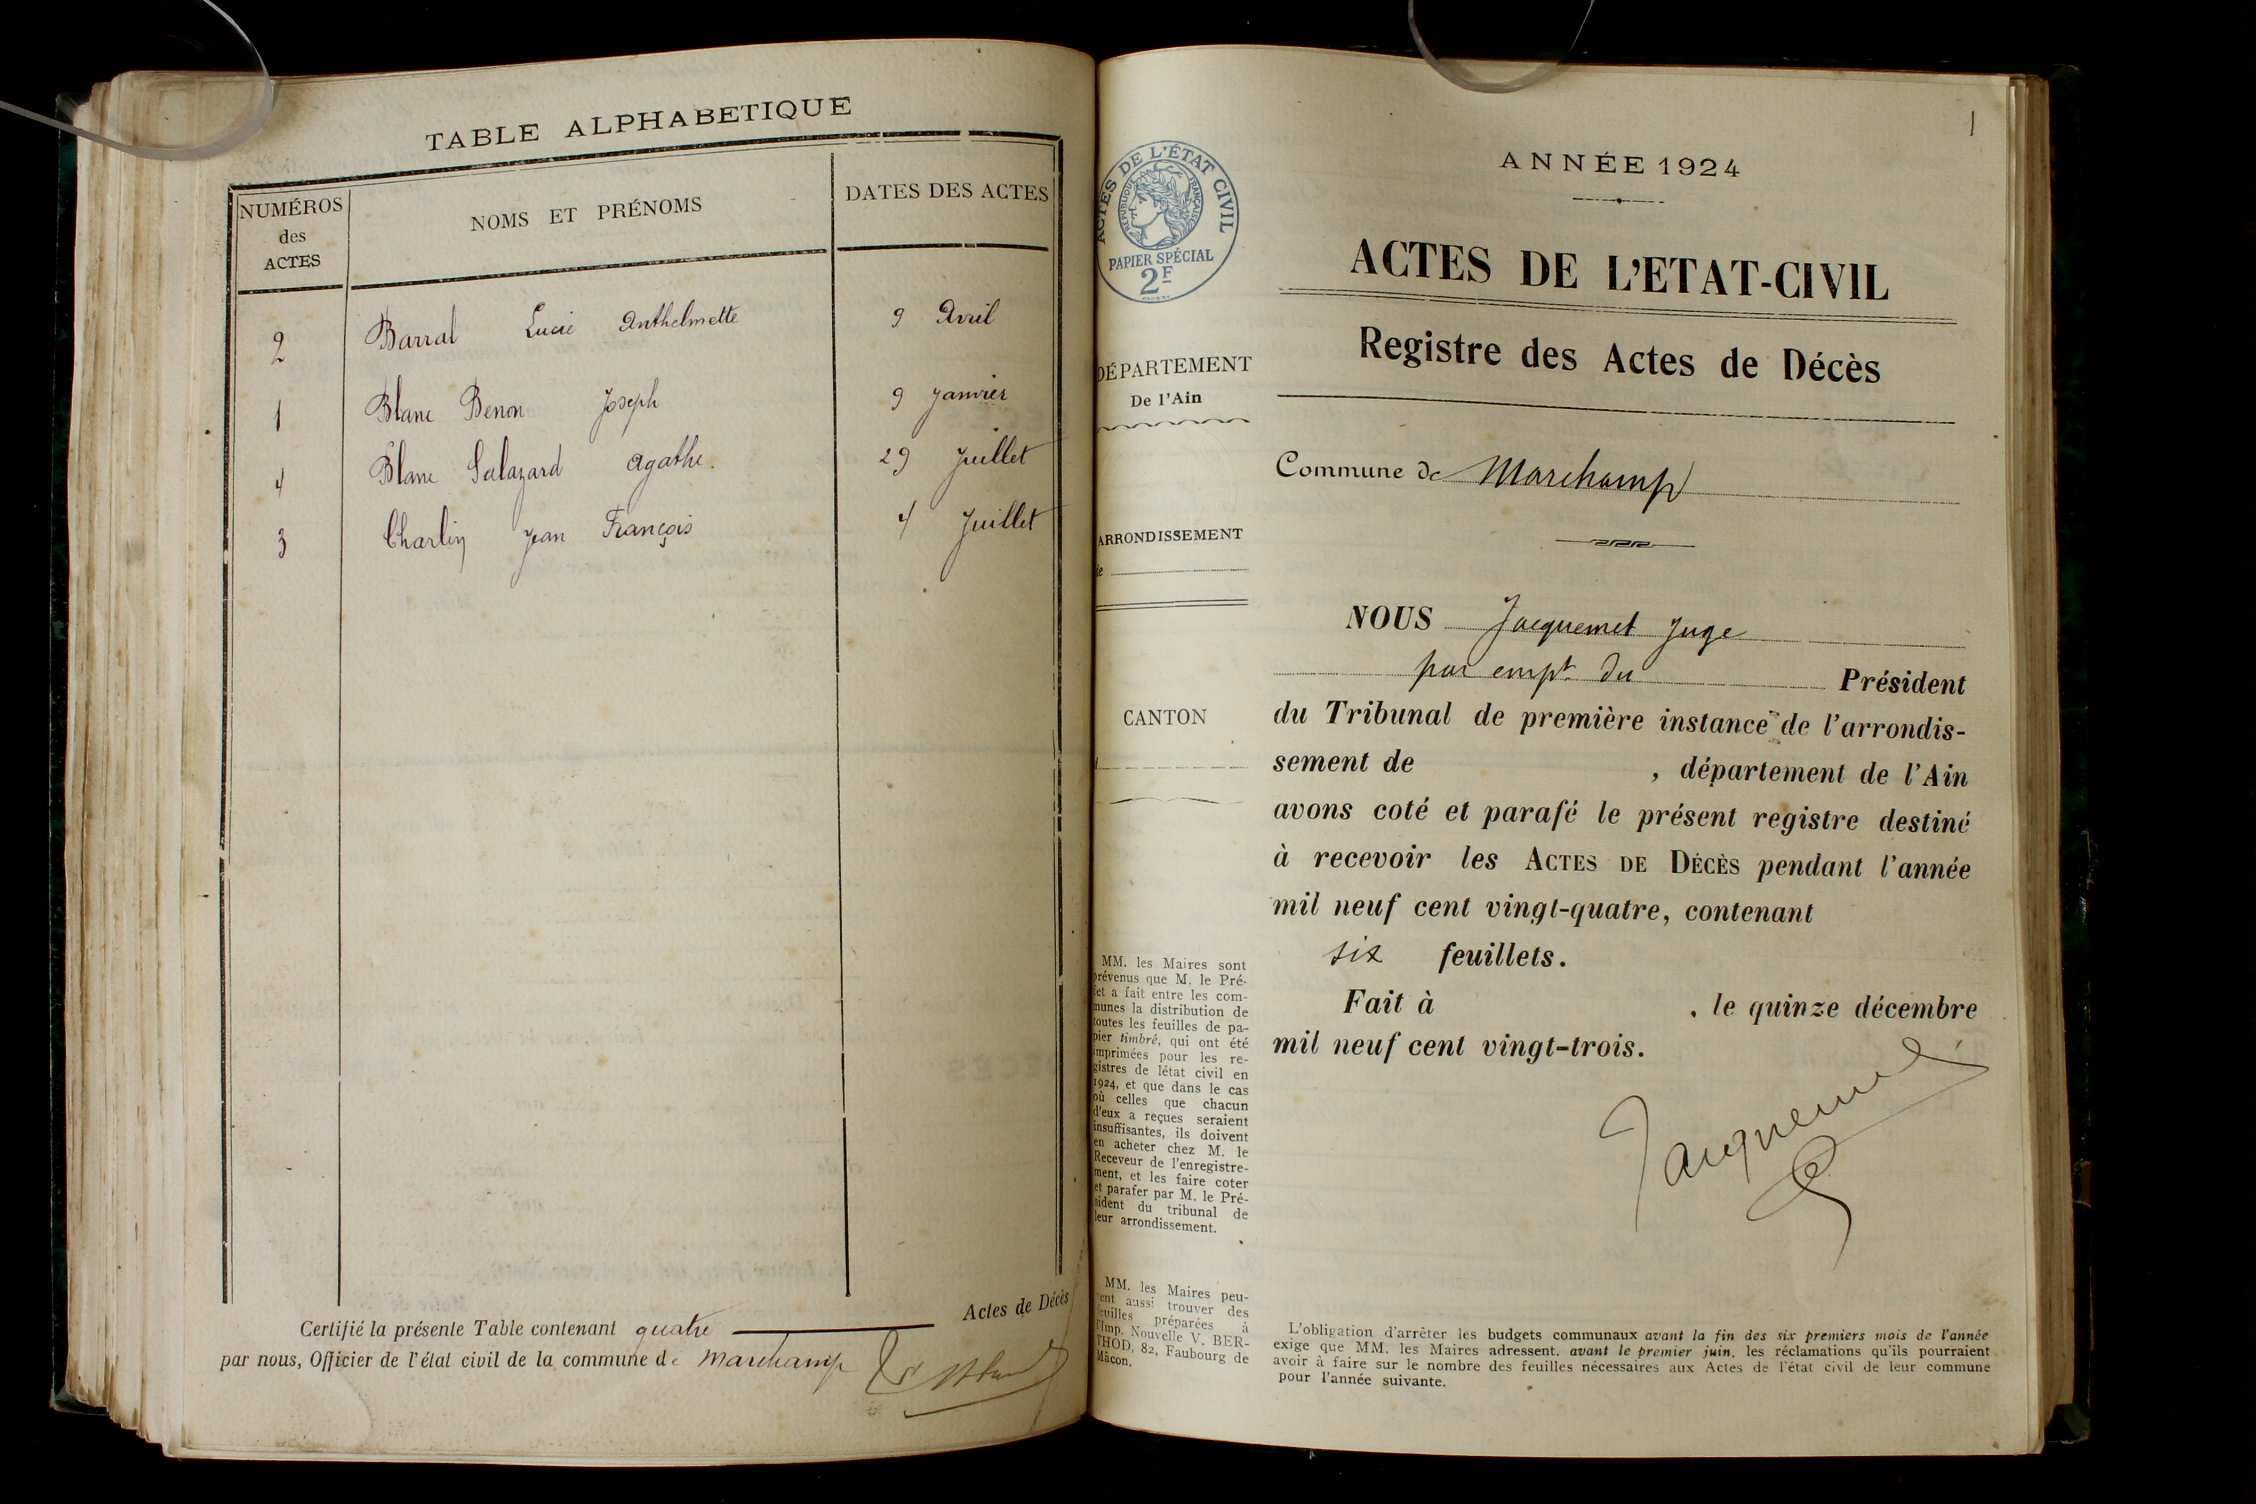 TABLE ALPHABETIQUE
NUMÉROS des ACTES
NOMS ET PRÉNOMS
DATES DES ACTES
2 Barral Lucie Anthelmette 9 Avril
1 Blanc Benon Joseph 9 Janvier
4 Blanc Salazard Agathe. 29 Juillet
3 Charlin Jean François 4 Juillet
Certifié la présente Table contenant quatre Actes de Décès
par nous, Officier de l'état civil de la commune de Marchamp
1
ACTES DE L'ÉTAT CIVIL
RÉPUBLIQUE FRANÇAISE
PAPIER SPÉCIAL
2F
DÉPARTEMENT
De l'Ain
ARRONDISSEMENT
de
CANTON
MM. les Maires sont
prévenus que M. le Pré-
fet a fait entre les com-
munes la distribution de
toutes les feuilles de pa-
pier timbré, qui ont été
imprimées pour les re-
gistres de létat civil en
1924, et que dans le cas
où celles que chacun
d'eux a reçues seraient
insuffisantes, ils doivent
en acheter chez M. le
Receveur de l'enregistre-
ment, et les faire coter
et parafer par M. le Pré-
sident du tribunal de
leur arrondissement.
MM. les Maires peu-
vent aussi trouver des
feuilles préparées à
l'Imp. Nouvelle V. BER-
THOD, 82, Faubourg de
Mâcon.
ANNÉE 1924
ACTES DE L'ETAT-CIVIL
Registre des Actes de Décès
Commune de Marchamp
NOUS Jacquemet Juge
par empt du Président
du Tribunal de première instance de l'arrondis-
sement de , département de l'Ain
avons coté et parafé le présent registre destiné
à recevoir les ACTES DE DÉCÈS pendant l'année
mil neuf cent vingt-quatre, contenant
six feuillets.
Fait à , le quinze décembre
mil neuf cent vingt-trois.
Jacquemet
L'obligation d'arrêter les budgets communaux avant la fin des six premiers mois de l'année
exige que MM. les Maires adressent, avant le premier juin, les réclamations qu'ils pourraient
avoir à faire sur le nombre des feuilles nécessaires aux Actes de l'état civil de leur commune
pour l'année suivante.